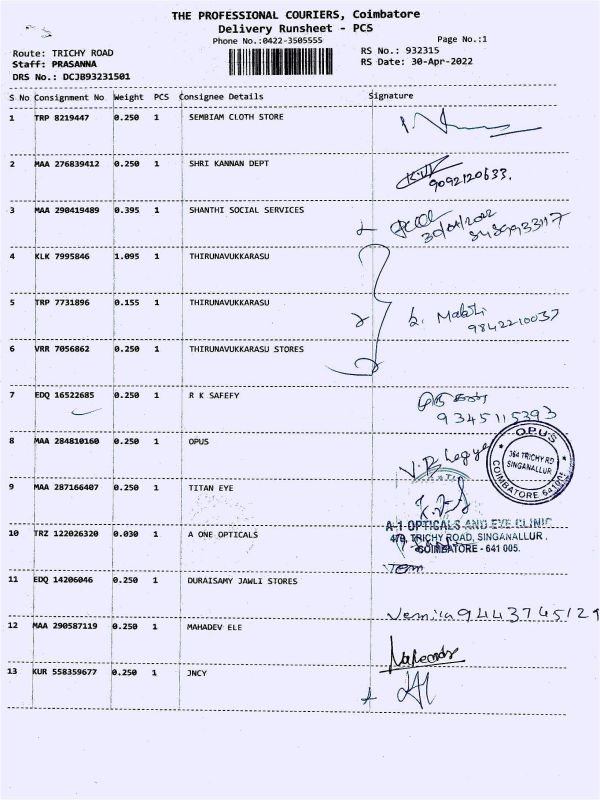 THE PROFESSIONAL COURIERS, Coimbatore
Delivery Runsheet - PCS
Phone No.:0422-3505555
Page No.:1
Route: TRICHY ROAD
RS No.: 932315
Staff: PRASANNA
RS Date: 30-Apr-2022
DRS No.: DCJB93231501
S No Consignment No Weight PCS Consignee Details Signature
1 TRP 8219447 0.250 1 SEMBIAM CLOTH STORE
2 MAA 276839412 0.250 1 SHRI KANNAN DEPT
9092120633.
3 MAA 290419489 0.395 1 SHANTHI SOCIAL SERVICES
30/04/2022
4 KLK 7995846 1.095 1 THIRUNAVUKKARASU
5 TRP 7731896 0.155 1 THIRUNAVUKKARASU
9842210037
6 VRR 7056862 0.250 1 THIRUNAVUKKARASU STORES
7 EDQ 16522685 0.250 1 R K SAFEFY
9345115393
8 MAA 284810160 0.250 1 OPUS
OPUS
364 TRICHY RD
SINGANALLUR
COIMBATORE 641005
9 MAA 287166407 0.250 1 TITAN EYE
A-1 OPTICALS AND EYE CLINIC
479, TRICHY ROAD, SINGANALLUR.
COIMBATORE - 641 005.
10 TRZ 122026320 0.030 1 A ONE OPTICALS
11 EDQ 14206046 0.250 1 DURAISAMY JAWLI STORES
9443745129
12 MAA 290587119 0.250 1 MAHADEV ELE
13 KUR 558359677 0.250 1 JNCY